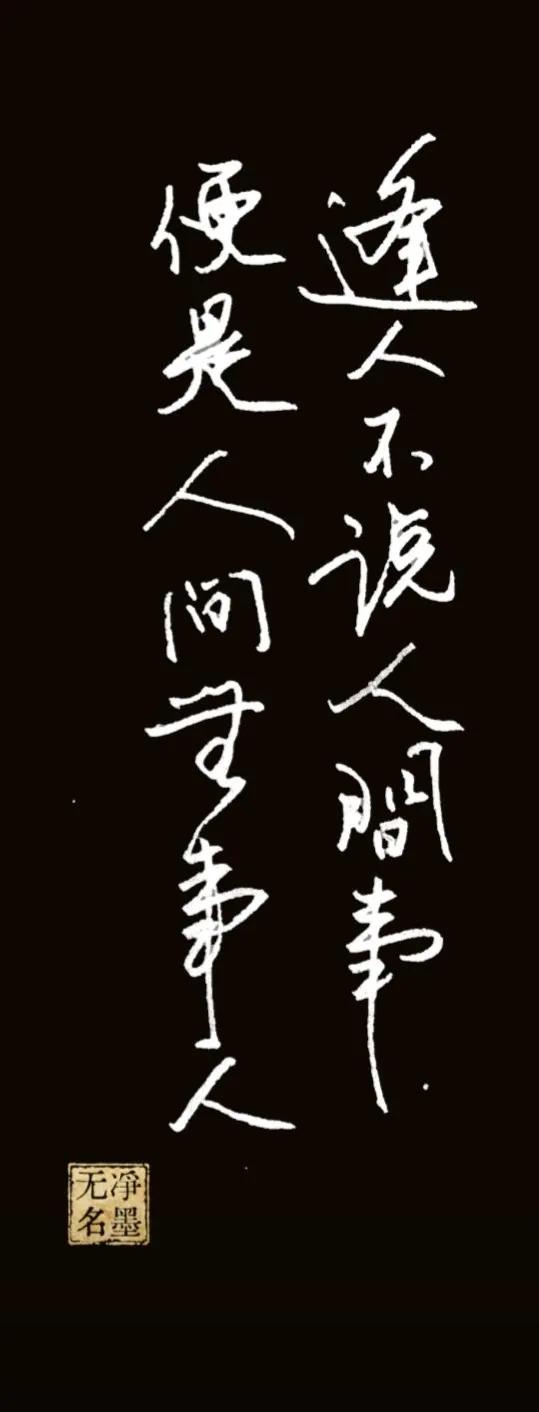 逢人不说人間事
便是人间無事人
净墨
无名